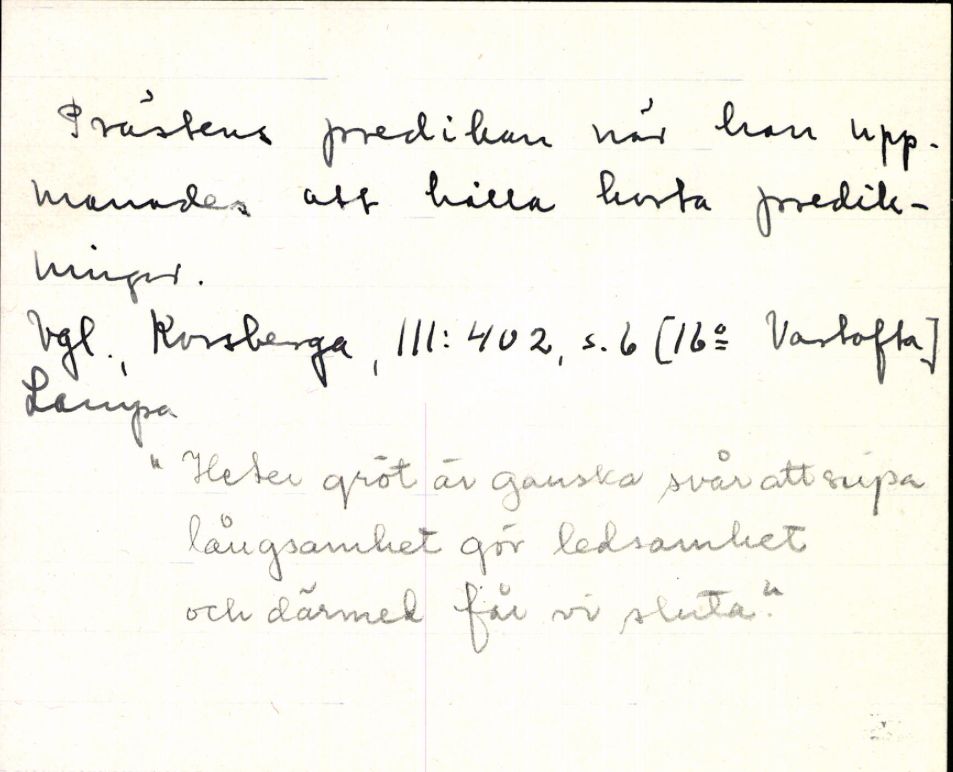 Prästens predikan när han upp-
manades att hålla korta predik-
ningar.
Vgl., Korsberga, III: 402, s. 6 [16º Vartofta]
Lampa
"Heter gröt är ganska svår att supa
långsamhet gör ledsamhet
och därmed får vi sluta."